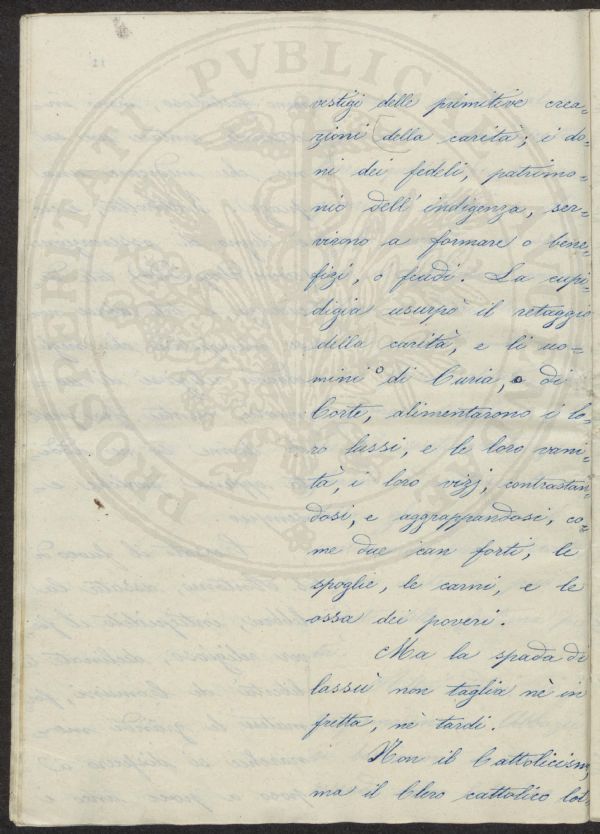 vestigi delle primitive crea=
zioni [della carità; i do=
ni dei fedeli, patrimo=
nio dell'indigenza, ser=
virono a formare o bene=
fizi, o feudi. La cupi=
digia usurpò il retaggio
della carità, e li uo=
mini o di Curia, o di
Corte, alimentarono i lo=
ro lussi, e le loro vani=
tà, i loro vizj, contrastan=
dosi, e aggrappandosi, co=
me due can forti, le
spoglie, le carni, e le
ossa dei poveri.
Ma la spada di
lassù non taglia nè in
fretta, nè tardi.
Non il Cattolicismo,
ma il Clero cattolico lot=
PROSPERITATI PUBLICAE